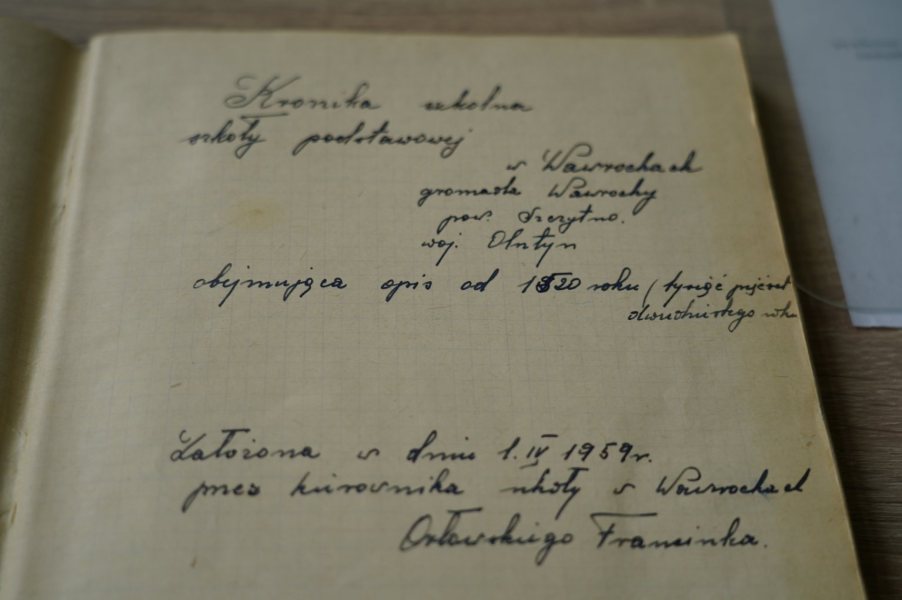 Kronika szkolna
szkoły podstawowej
w Wawrochach
gromada Wawrochy
pow. Szczytno.
woj. Olsztyn
obejmująca opis od 1520 roku (tysiąc pięćset
dwudziestego roku
Założona w dniu 1.IV 1959r.
przez kierownika szkoły w Wawrochach
Orłowskiego Franciszka.